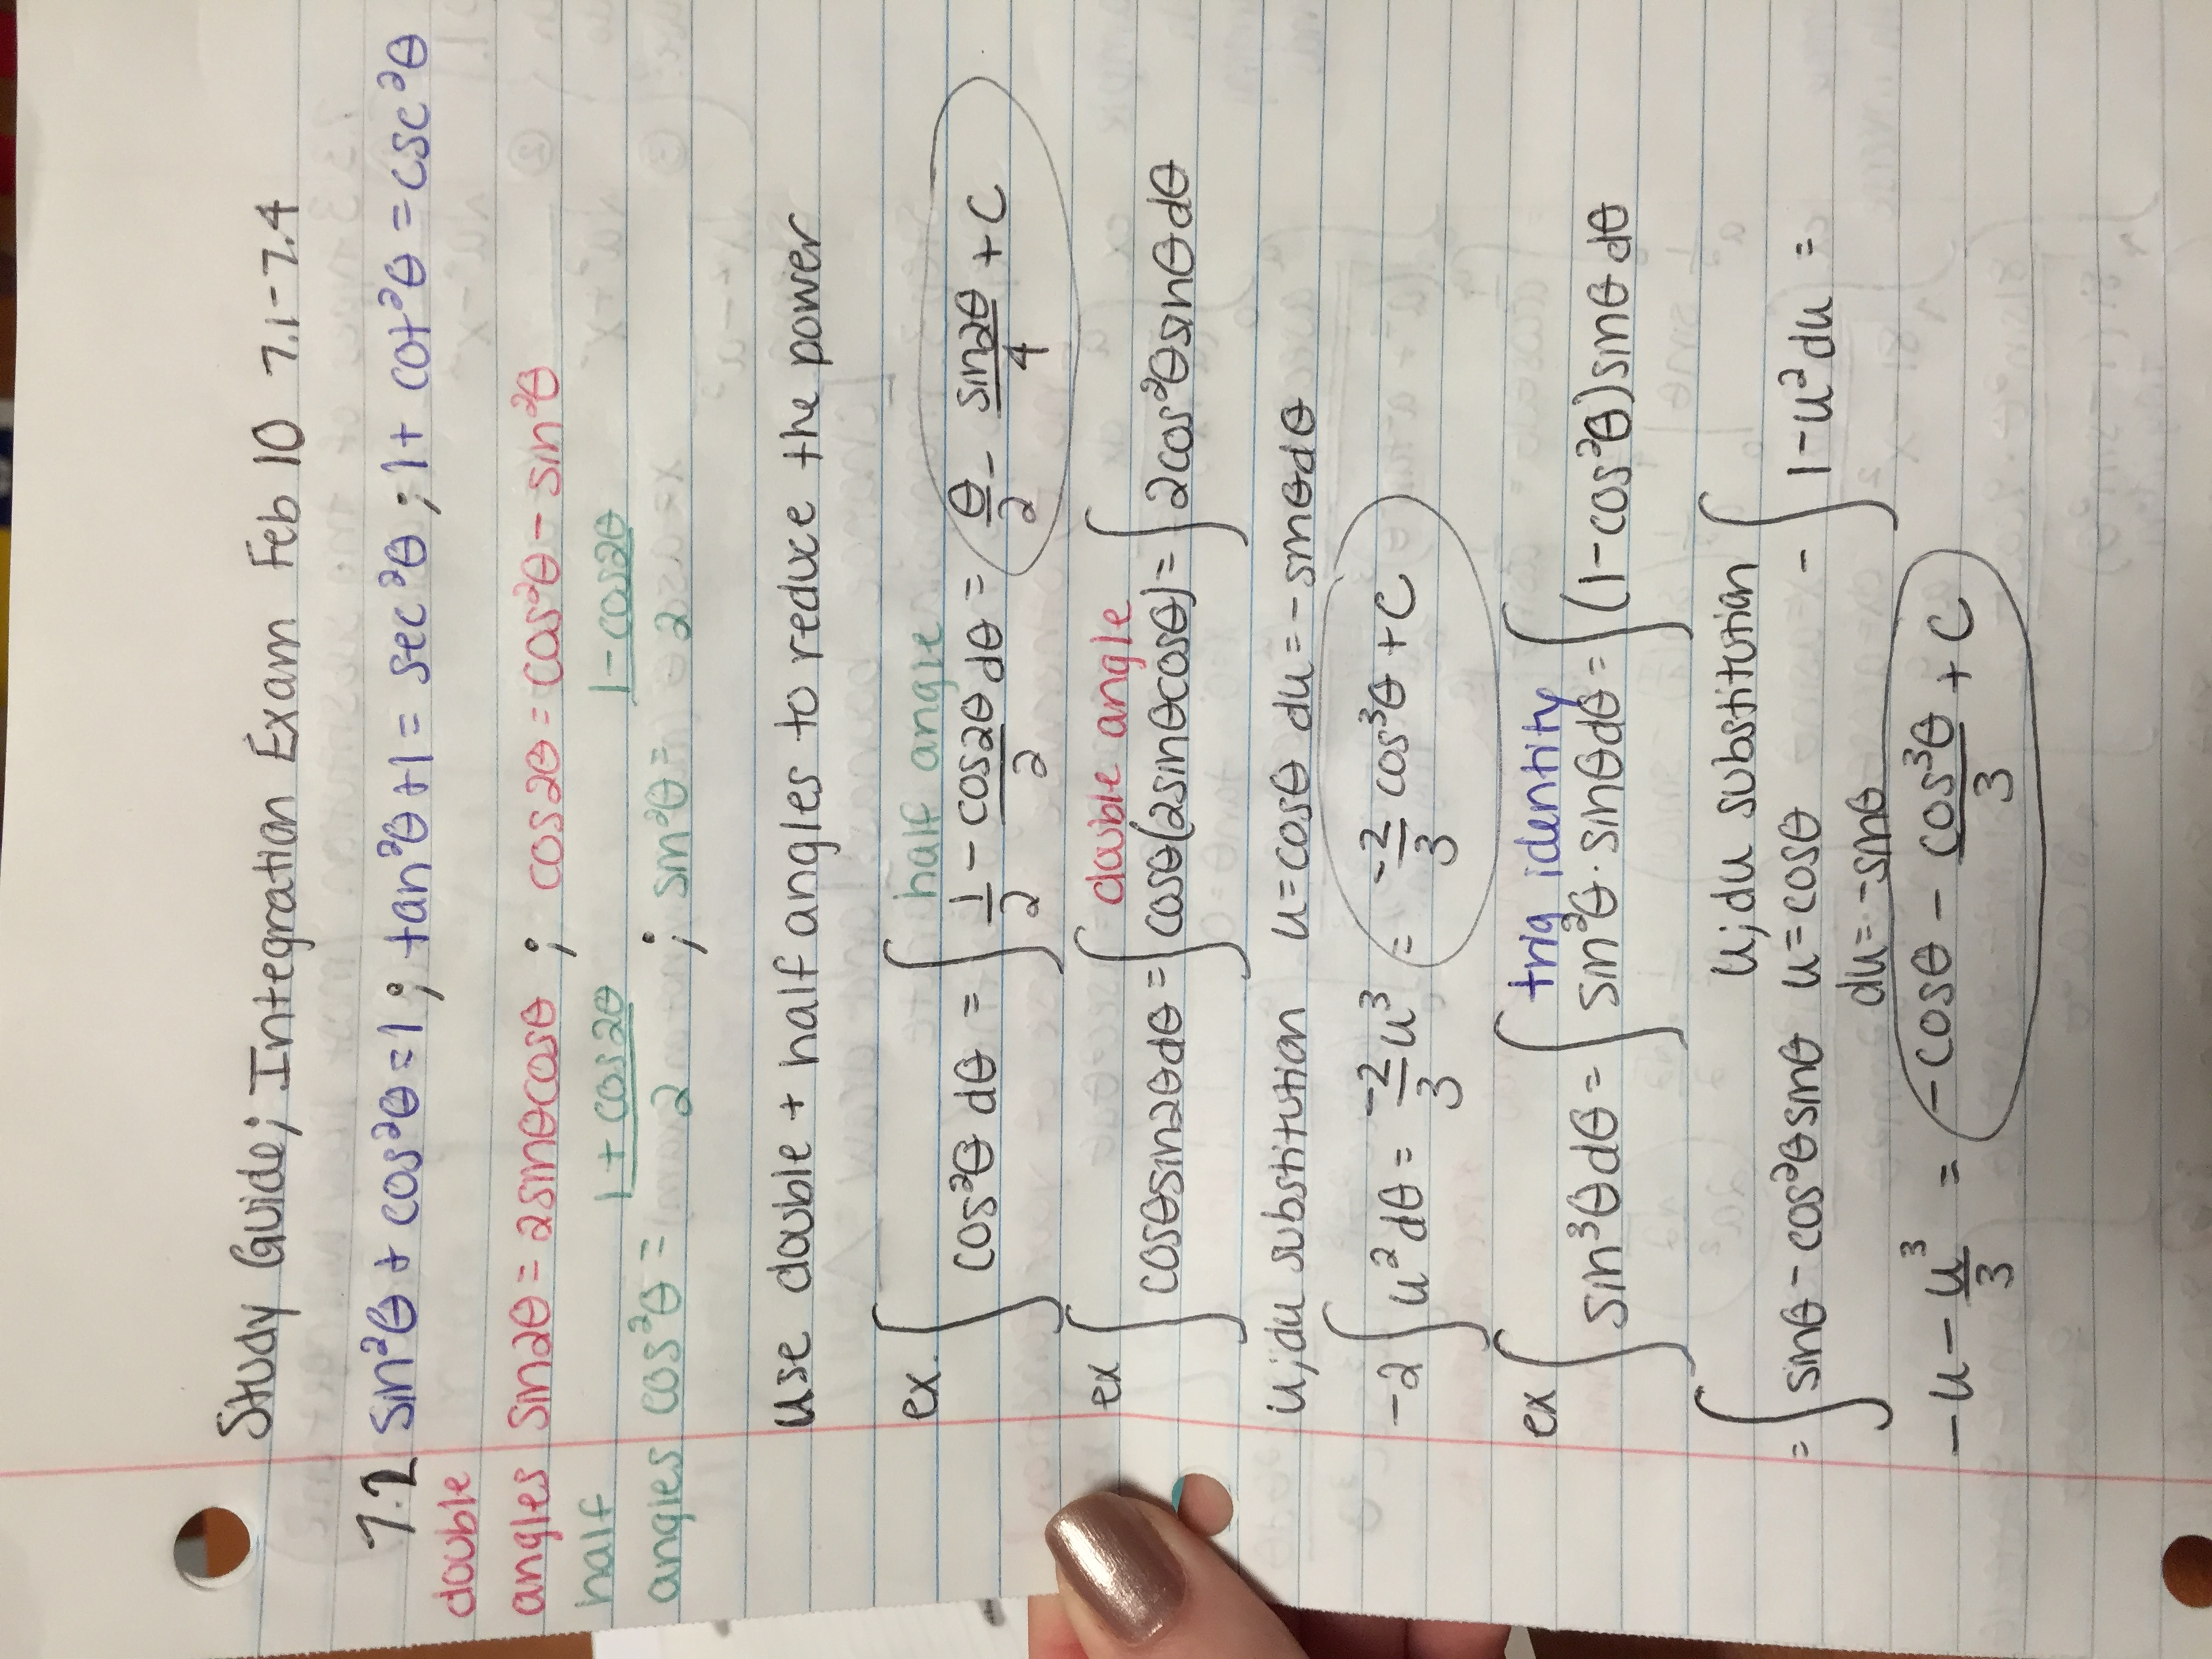 Study Guide; Integration Exam Feb 10 7.1-7.4
7.2 sin²θ + cos²θ = 1; tan²θ + 1 = sec²θ; 1 + cot²θ = csc²θ
double
angles sin2θ = 2sinθcosθ ; cos2θ = cos²θ - sin²θ
half
angles cos²θ = (1 + cos2θ)/2 ; sin²θ = (1 - cos2θ)/2
use double + half angles to reduce the power
half angle
ex. ∫ cos²θ dθ = ∫ 1/2 - cos2θ/2 dθ = θ/2 - sin2θ/4 + C
double angle
ex ∫ cosθsin2θdθ = ∫ cosθ(2sinθcosθ) = ∫ 2cos²θsinθdθ
u;du substitution u=cosθ du=-sinθdθ
-2 ∫ u²dθ = -2/3 u³ = -2/3 cos³θ + C
trig identity
ex ∫ sin³θdθ = ∫ sin²θ·sinθdθ = ∫ (1-cos²θ)sinθdθ
u;du substitution
= ∫ sinθ - cos²θsinθ u=cosθ - ∫ 1-u²du =
du=-sinθ
-u - u³/3 = -cosθ - cos³θ/3 + C